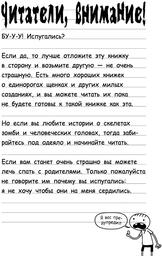 Читатели, внимание!
БУ-У-У! Испугались?
Если да, то лучше отложите эту книжку
в сторону и возьмите другую — не очень
страшную. Есть много хороших книжек
о единорогах щенках и других милых
созданиях, и вы можете читать их пока
не будете готовы к такой книжке как эта.
Но если вы любите истории о скелетах
зомби и человеческих головах, тогда заби-
райтесь под одеяло и начинайте читать.
Если вам станет очень страшно вы можете
лечь спать с родителями. Только пожалуйста
не говорите им почему вы испугались:
я не хочу чтобы они на меня сердились.
Я вас пре-
дупредил!